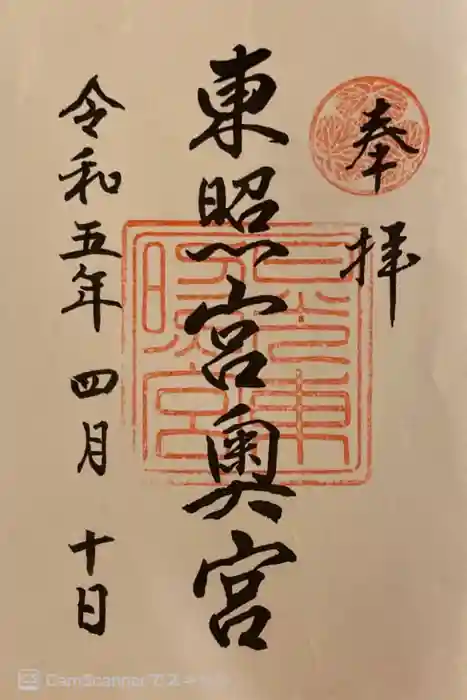 奉拝
東照宮奥宮
令和五年 四月 十日
日光東照宮
CamScannerでスキャン